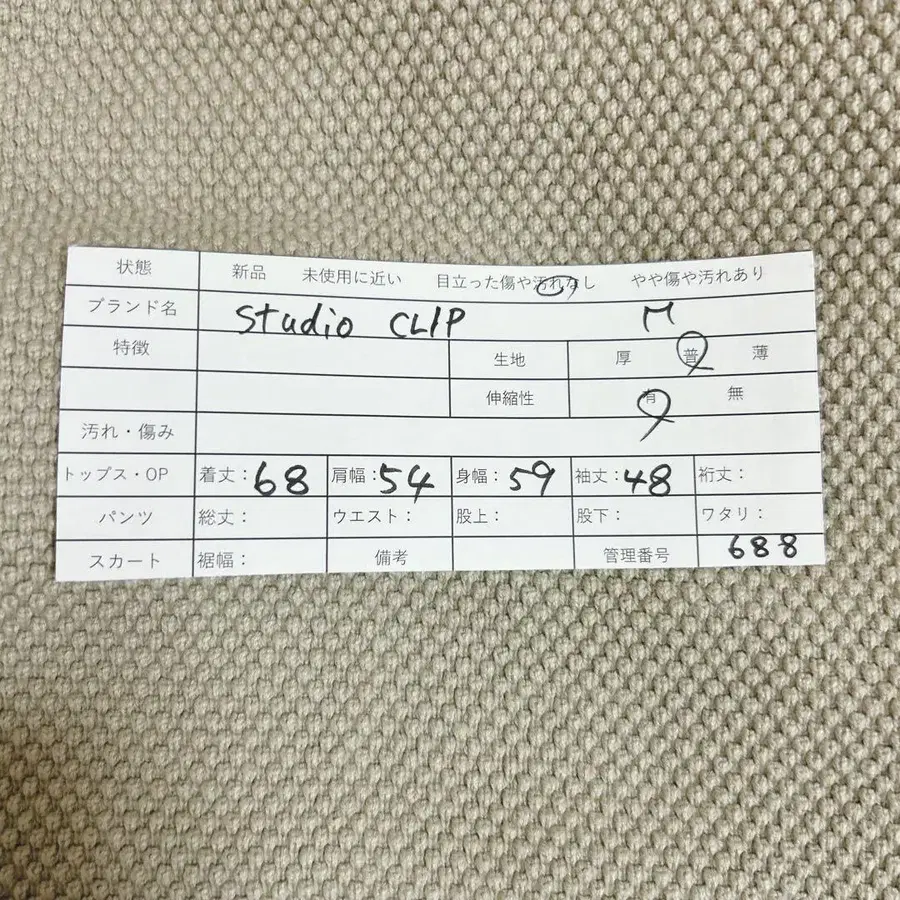 状態 新品 未使用に近い 目立った傷や汚れなし やや傷や汚れあり
ブランド名 studio CLIP M
特徴 生地 厚 普 薄
伸縮性 有 無
汚れ・傷み
トップス・OP 着丈：68 肩幅：54 身幅：59 袖丈：48 裄丈：
パンツ 総丈： ウエスト： 股上： 股下： ワタリ：
スカート 裾幅： 備考 管理番号 688